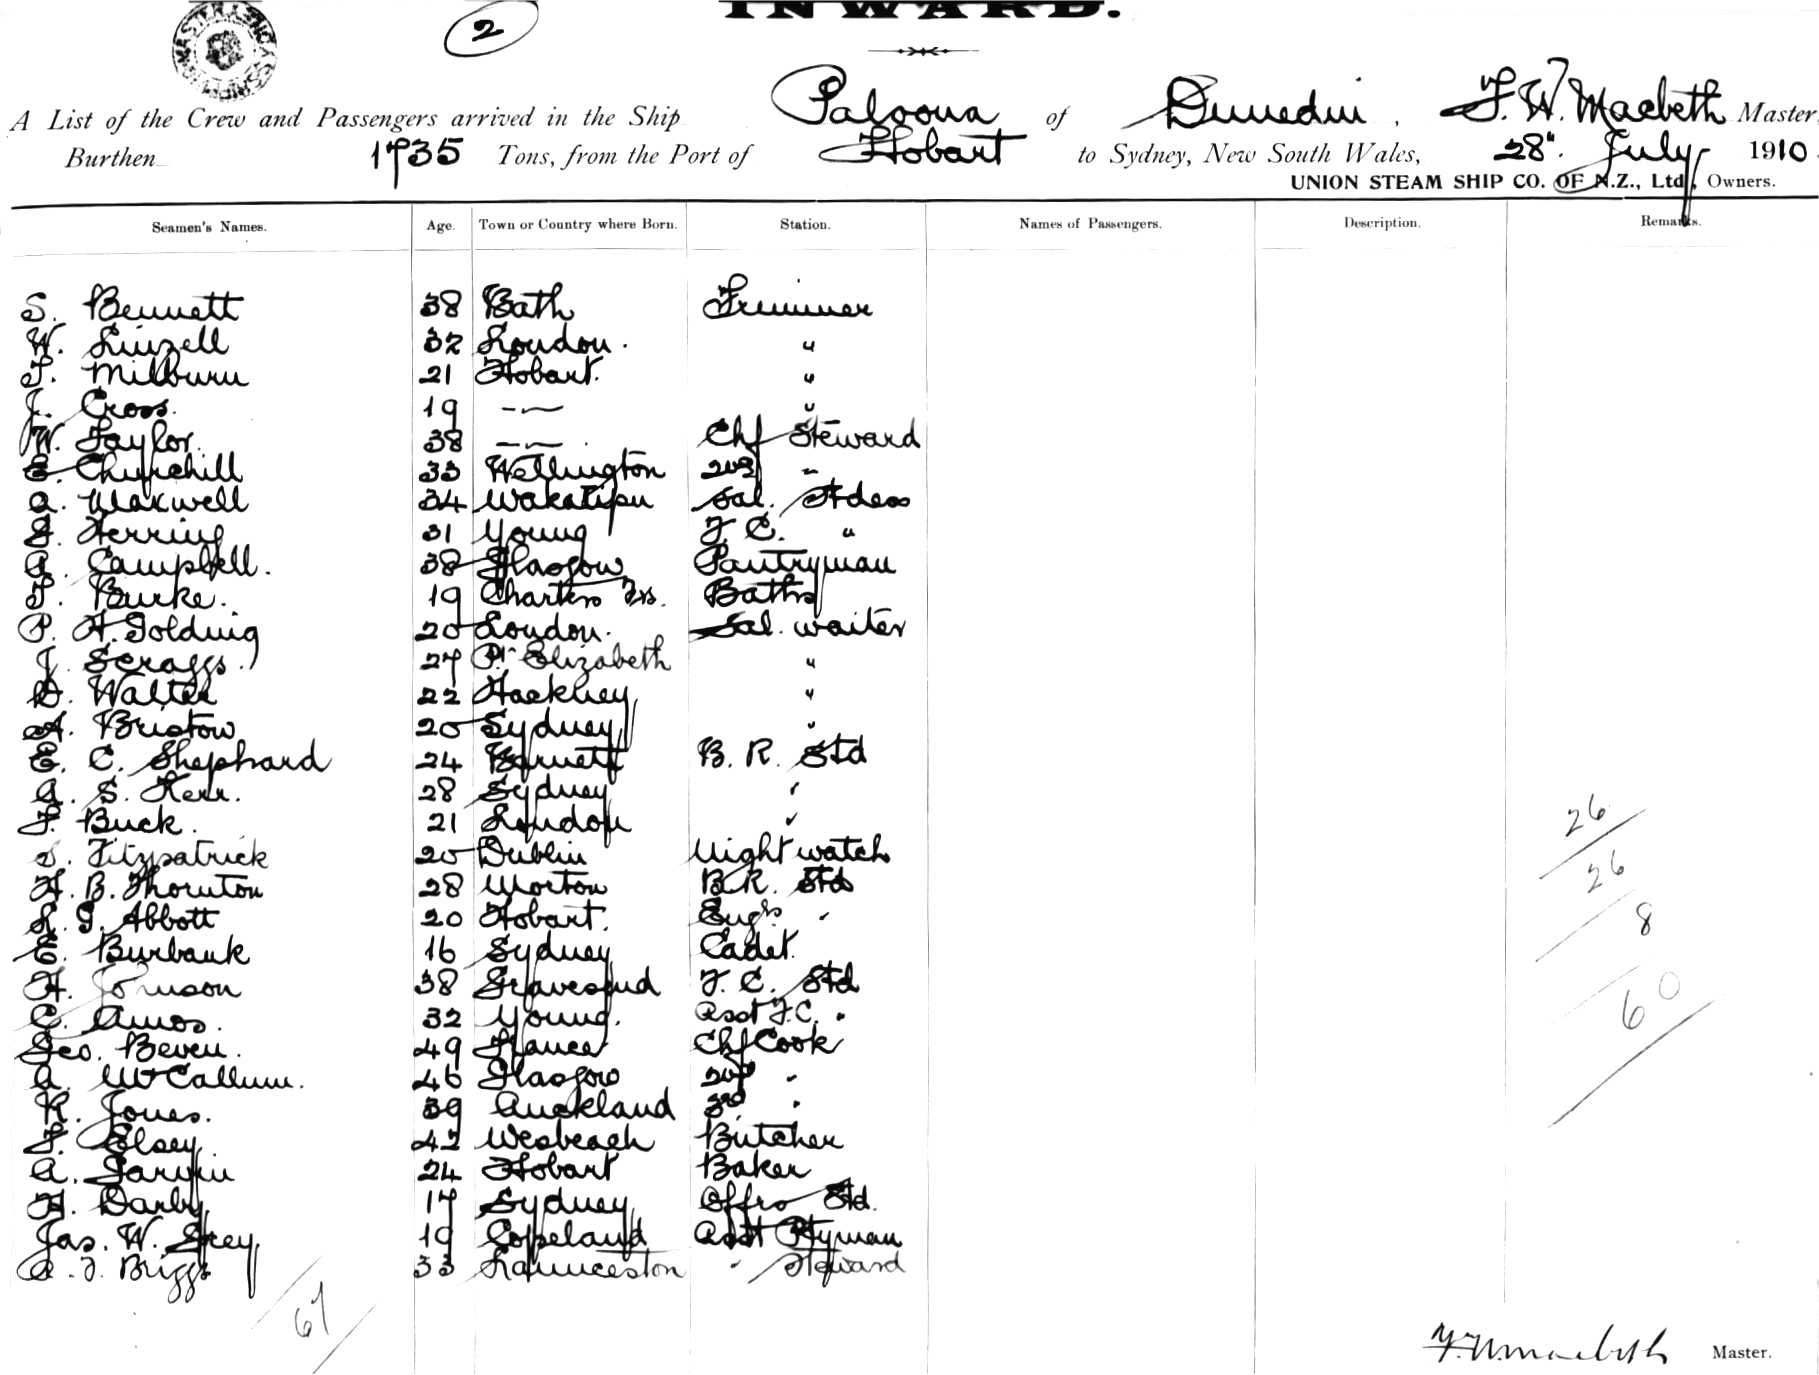 2
INWARD.
A List of the Crew and Passengers arrived in the Ship Paloona of Dunedin, F. W. Macbeth Master
Burthen 1735 Tons, from the Port of Hobart to Sydney, New South Wales, 28" July 1910
UNION STEAM SHIP CO. OF N.Z., Ltd, Owners.
Seamen's Names. Age. Town or Country where Born. Station. Names of Passengers. Description. Remarks.
S. Bennett 38 Bath Trimmer
W. Linzell 32 London. "
T. Milburn 21 Hobart. "
J. Cross. 19 -~ "
W. Taylor. 38 -~ Chf Steward
E. Churchill 33 Wellington 2nd "
A. Maxwell 34 Wakatipu Sal. Stdess
Herring 31 Young F. C. "
A. Campbell. 38 Glasgow Pantryman
T. Burke. 19 Charters Trs. Baths
P. H. Golding 20 London. Sal. waiter
J. Scraggs. 27 Pt Elizabeth "
D. Walter 22 Hackney "
A. Bristow 20 Sydney "
E. C. Shephard 24 Barnett B. R. Std
A. S. Kerr. 28 Sydney "
F. Buck. 21 London "
Fitzpatrick 20 Dublin Night watch
H. B. Thornton 28 Morton B.R. Std
L. G. Abbott 20 Hobart. Engrs "
E. Burbank 16 Sydney Cadet.
H. Jonson 38 Gravesend F. C. Std
C. Amos. 32 Young. Asst F.C. "
Geo. Beven. 49 France Chf Cook
A. McCallum. 46 Glasgow 2nd "
R. Jones. 39 Auckland 3rd "
F. Elsey 42 Wesbeach Butcher
A. Garvin 24 Hobart Baker
H. Darby 17 Sydney Offrs Std.
Jas. W. Grey 19 Copeland Asst Ptyman
A. J. Briggs 33 Launceston " Steward
26
26
8
60
67
F. W. Macbeth Master.